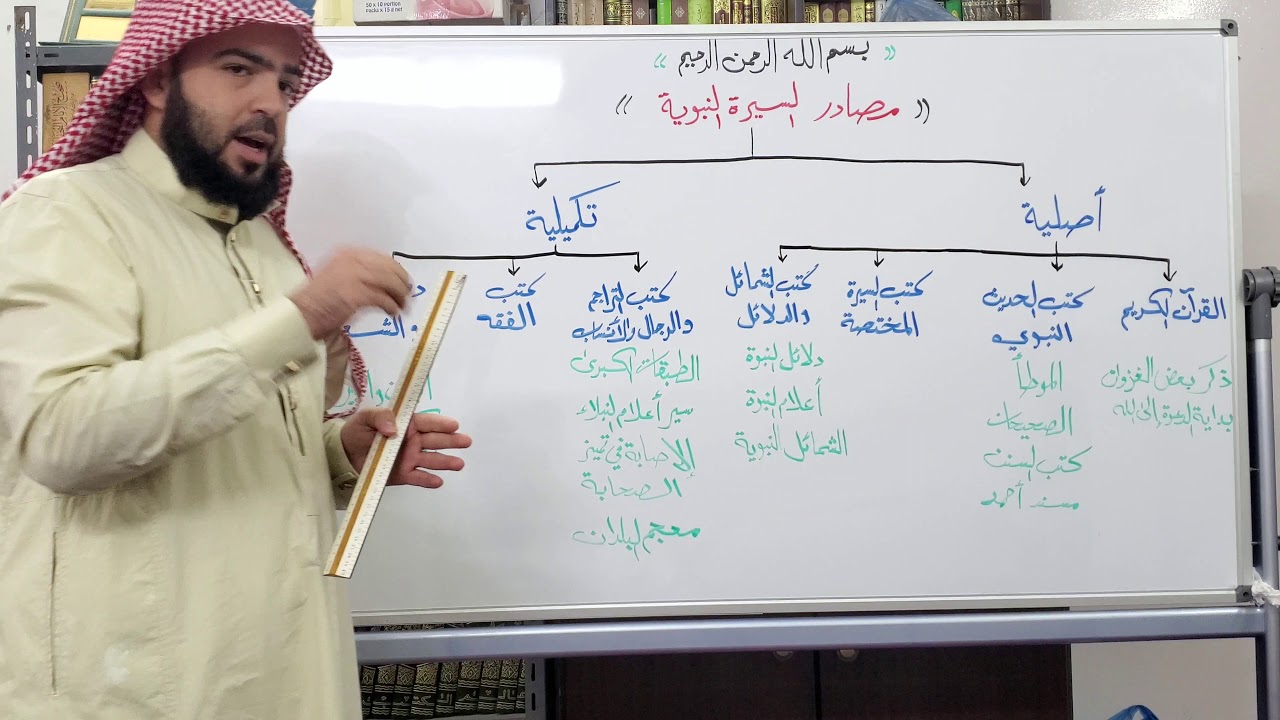 « بسم الله الرحمن الرحيم »
(( مصادر السيرة النبوية ))
أصلية
تكميلية
القرآن الكريم
ذكر بعض الغزوات
بداية الدعوة إلى الله
كتب الحديث
النبوي
الموطأ
الصحيحات
كتب السنن
مسند أحمد
كتب السيرة
المختصة
كتب الشمائل
والدلائل
دلائل النبوة
أعلام النبوة
الشمائل النبوية
كتب التراجم
والرجال والأنساب
الطبقات الكبرى
سير أعلام النبلاء
الإصابة في تميز
الصحابة
معجم البلدان
كتب
الفقه
50 x 10 portion
racks x 15 g net